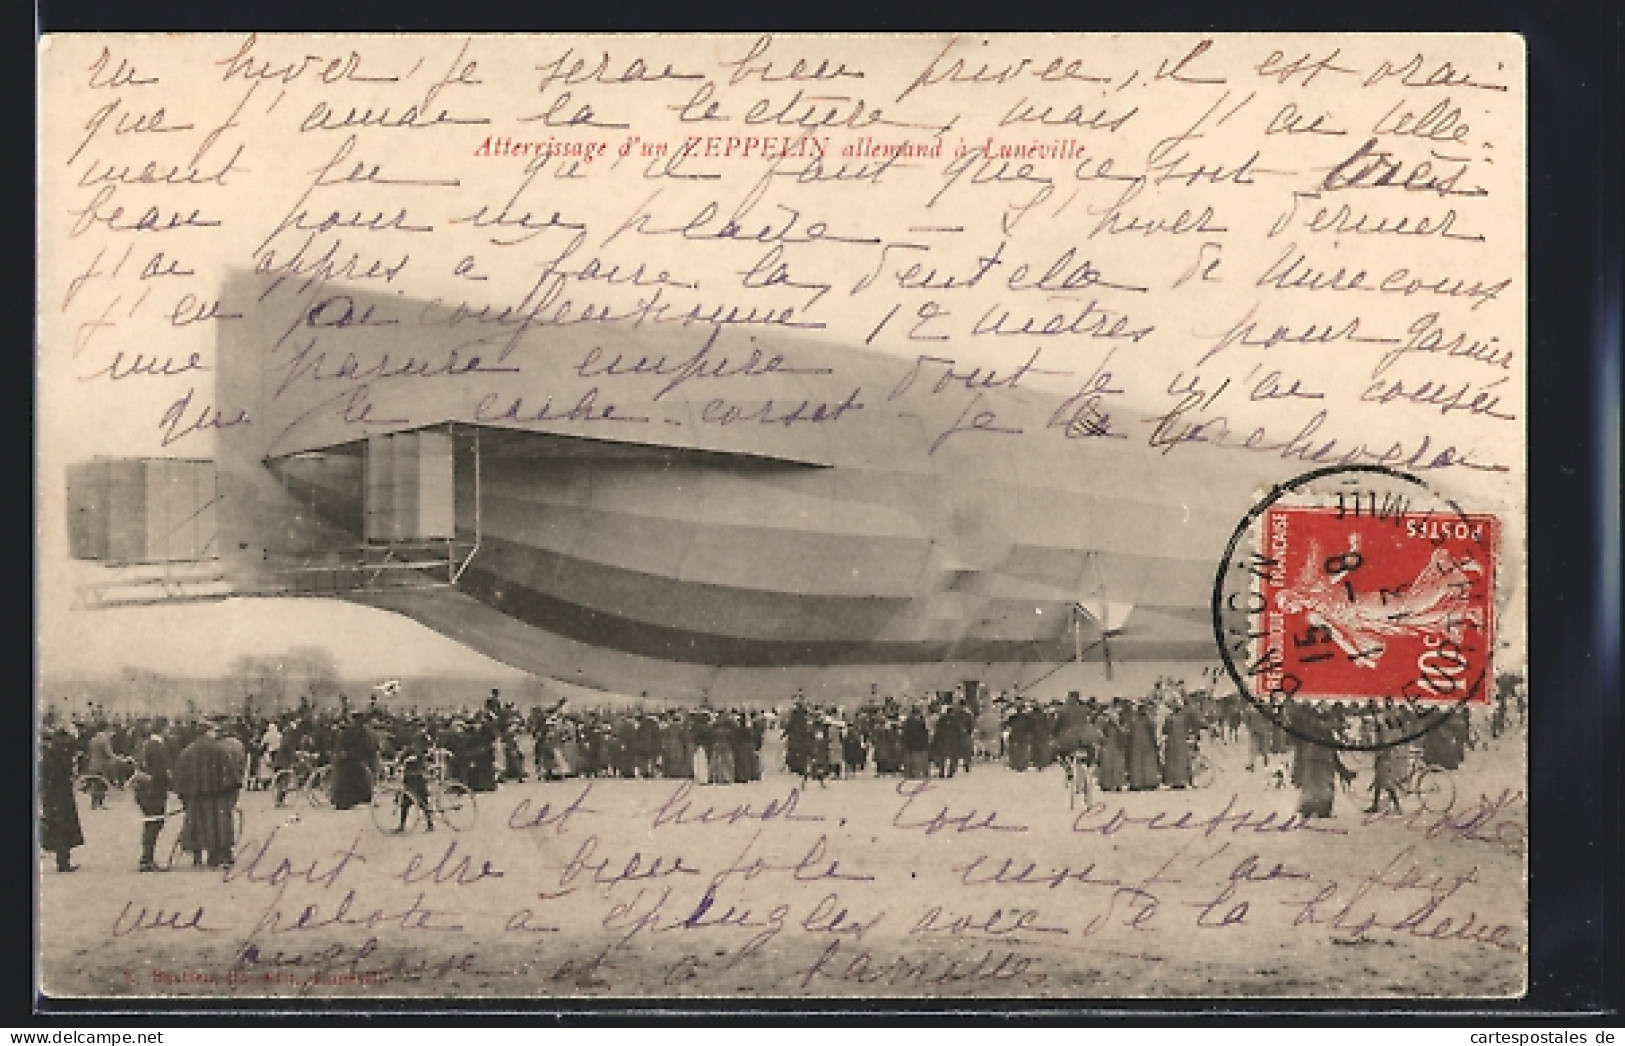 en hiver, je serai bien privée, il est vrai
que j'aime la lecture, mais j'ai telle-
Atterrissage d'un ZEPPELIN allemand à Lunéville
ment lu qu'il faut que ce soit très
beau pour me plaire – L'hiver dernier
j'ai appris à faire la dentelle de Mirecourt
j'en ai confectionné 12 mètres pour garnir
une parure empire dont je n'ai cousu
que le cache-corset – je l'achèverai
cet hiver. Ton coussin
doit être bien joli. moi j'ai fait
une pelote à épingles avec de la broderie
anglaise et
E. Bastien, Lunéville
REPUBLIQUE FRANÇAISE
POSTES
10c
BAYON
15 - 8
13
MTHE & MLLE
cartespostales de